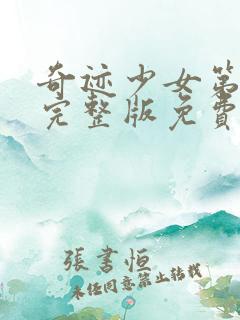 奇迹少女第
完整版免費
張書恒
未经同意禁止转载